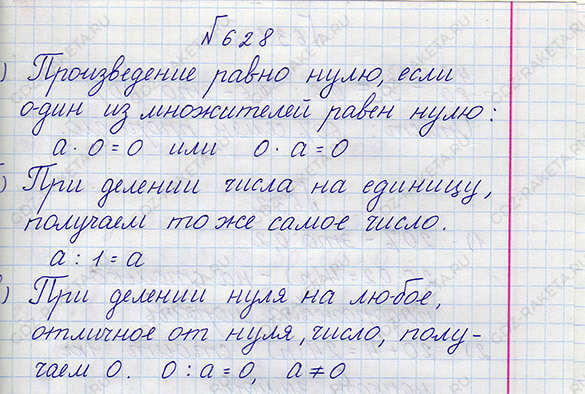 № 628
) Произведение равно нулю, если
один из множителей равен нулю:
a · 0 = 0 или 0 · a = 0
) При делении числа на единицу,
получаем то же самое число.
a : 1 = a
) При делении нуля на любое,
отличное от нуля, число, полу-
чаем 0. 0 : a = 0, a ≠ 0
GDZ-RAKETA.RU